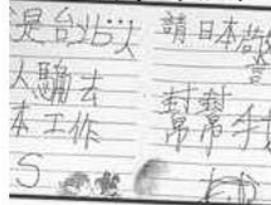 是台北
人騙去
本工作
S
請日本警
幫幫手